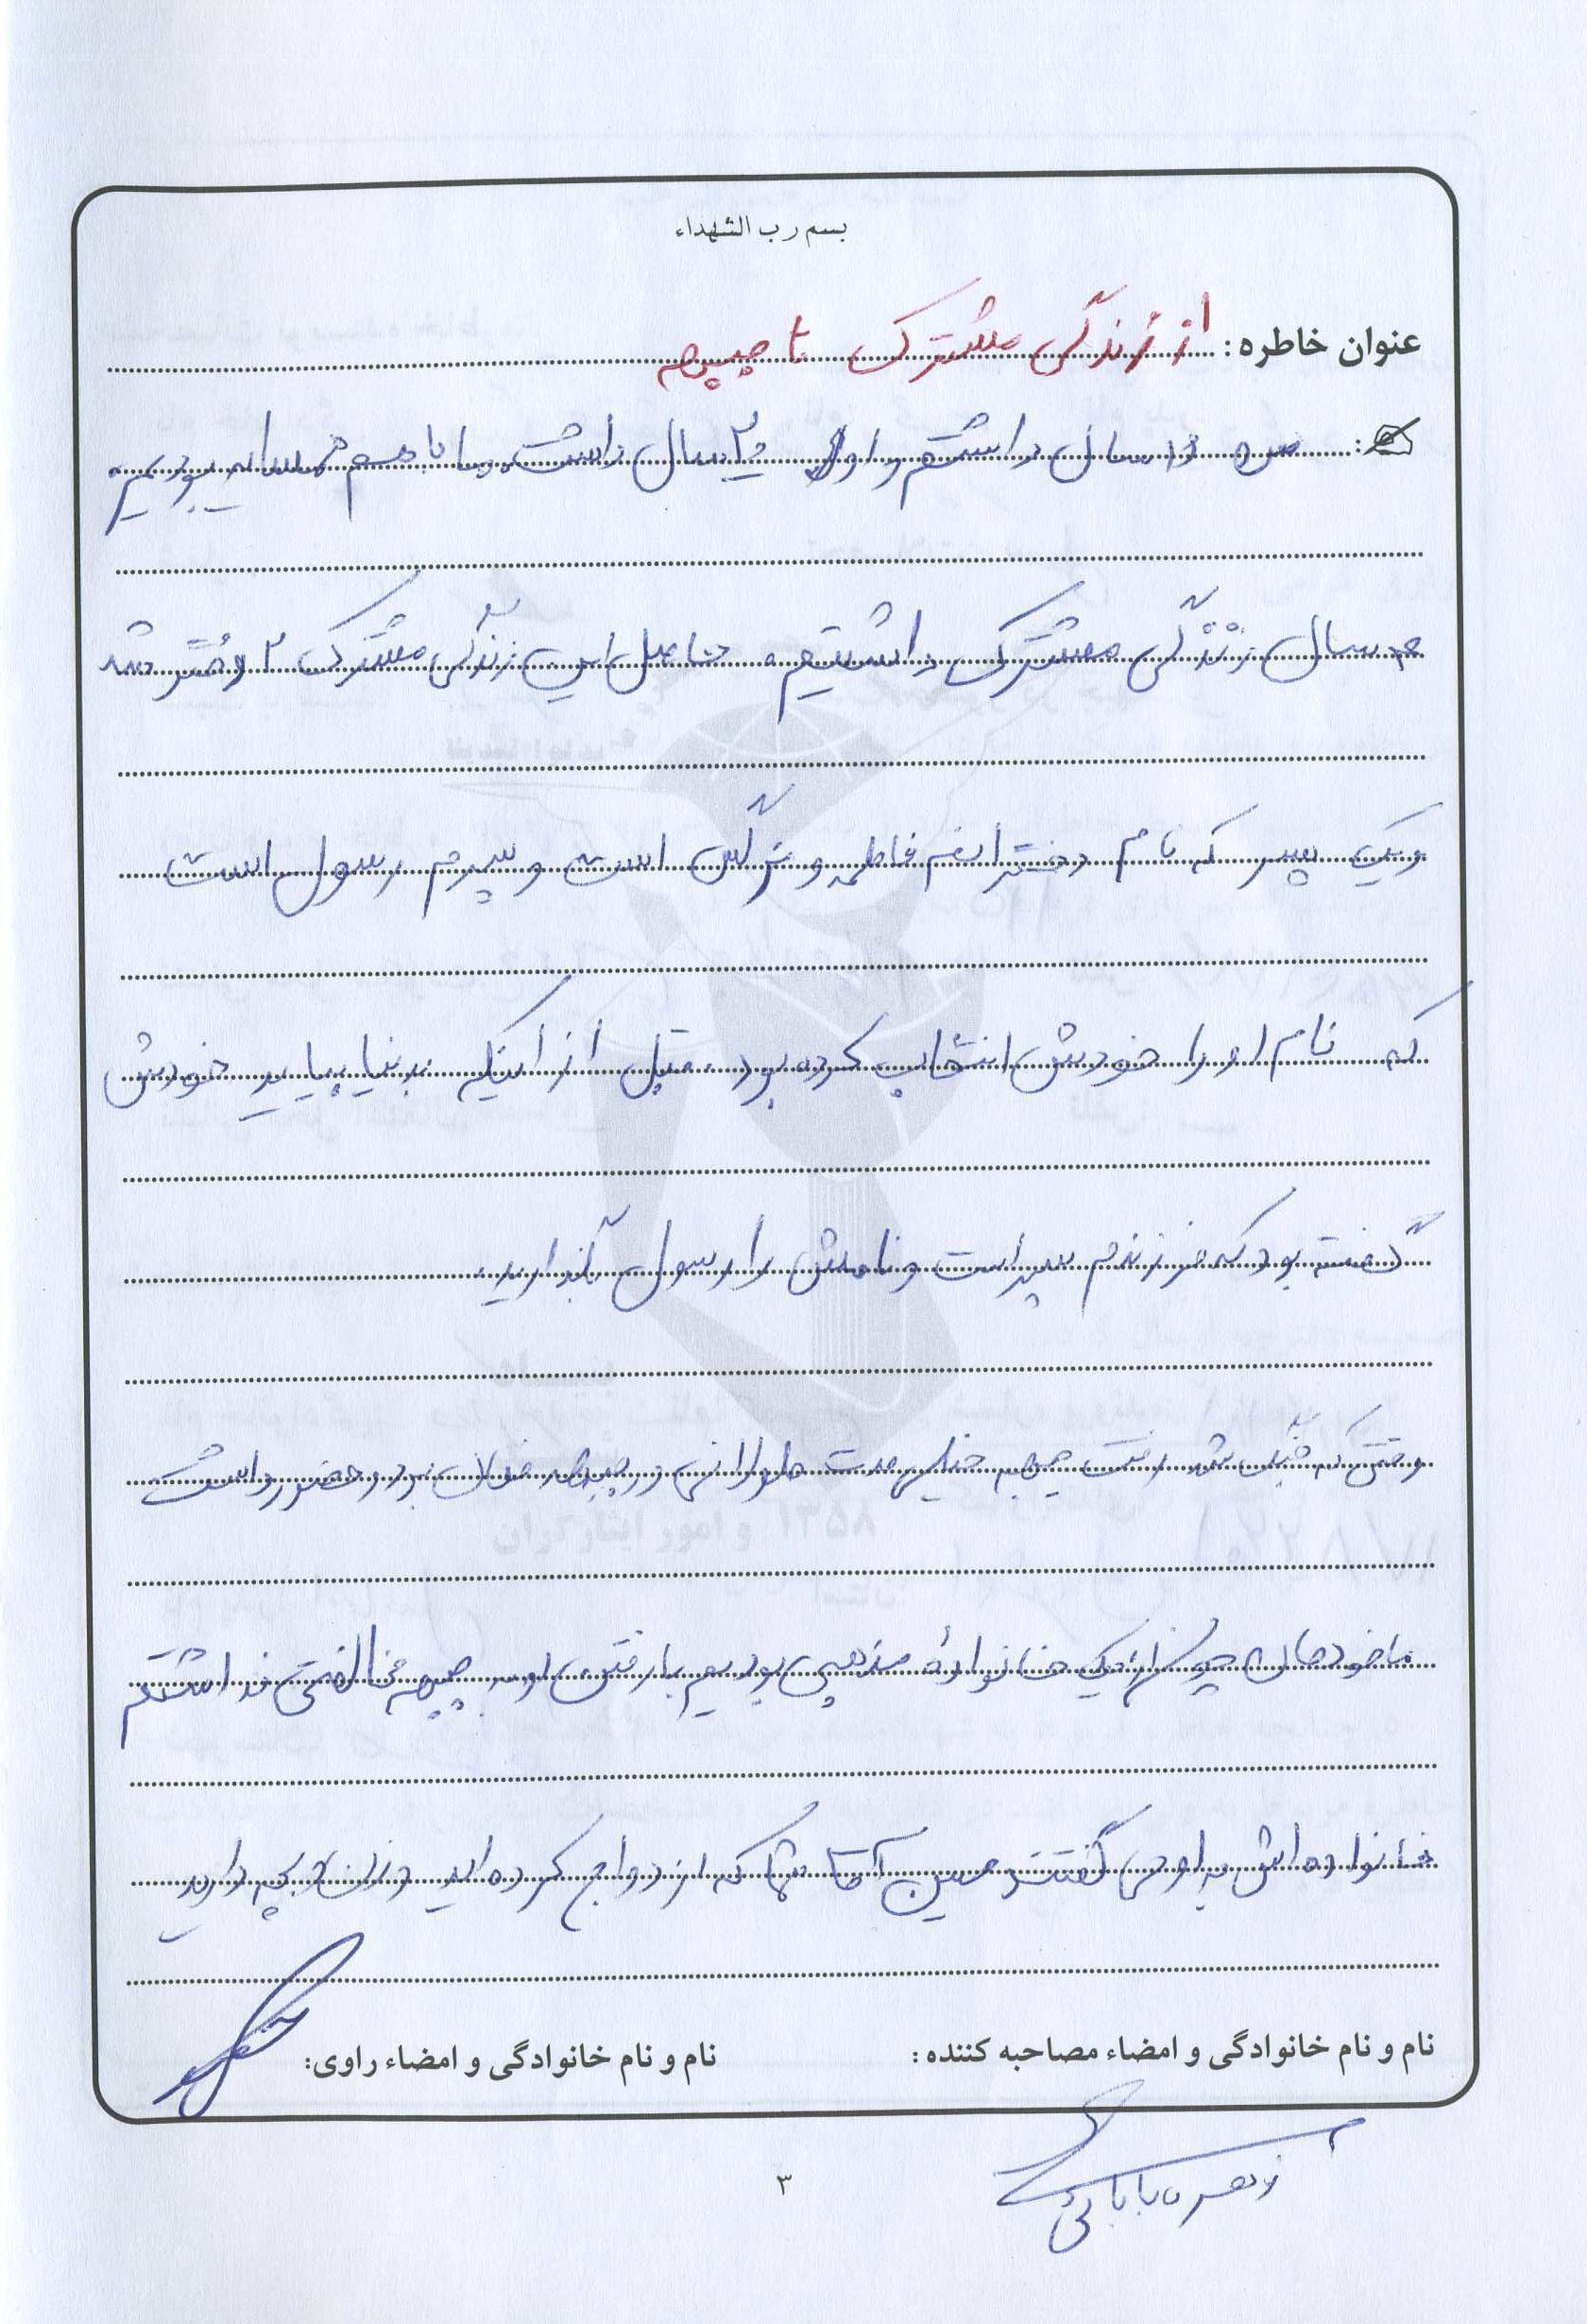 بسم رب الشهداء
عنوان خاطره: از زندگی مشترک تا جبهه
من ۱۵ سال داشتم و او ۲۰ سال داشت. ما با هم همسایه بودیم.
سال زندگی مشترک داشتیم. حاصل این زندگی مشترک ۲ دختر شد
و یک پسر که نام دخترانم فاطمه و نرگس است و پسرم رسول است
که نام او را خودش انتخاب کرده بود. قبل از اینکه بدنیا بیاید خودش
گفته بود که فرزندم پسر است و نامش را رسول بگذارید.
وقتی که جنگ شد رفت جبهه خیلی مدت طولانی در جبهه بود و حضور داشت
ما خودمان چون از یک خانوادهٔ مذهبی بودیم با رفتن او به جبهه مخالفتی نداشتم
خانواده اش به او می گفتند حسین آقا شما که ازدواج کرده اید و زن و بچه دارید
نام و نام خانوادگی و امضاء مصاحبه کننده:
نام و نام خانوادگی و امضاء راوی:
زهره بابائی
۳